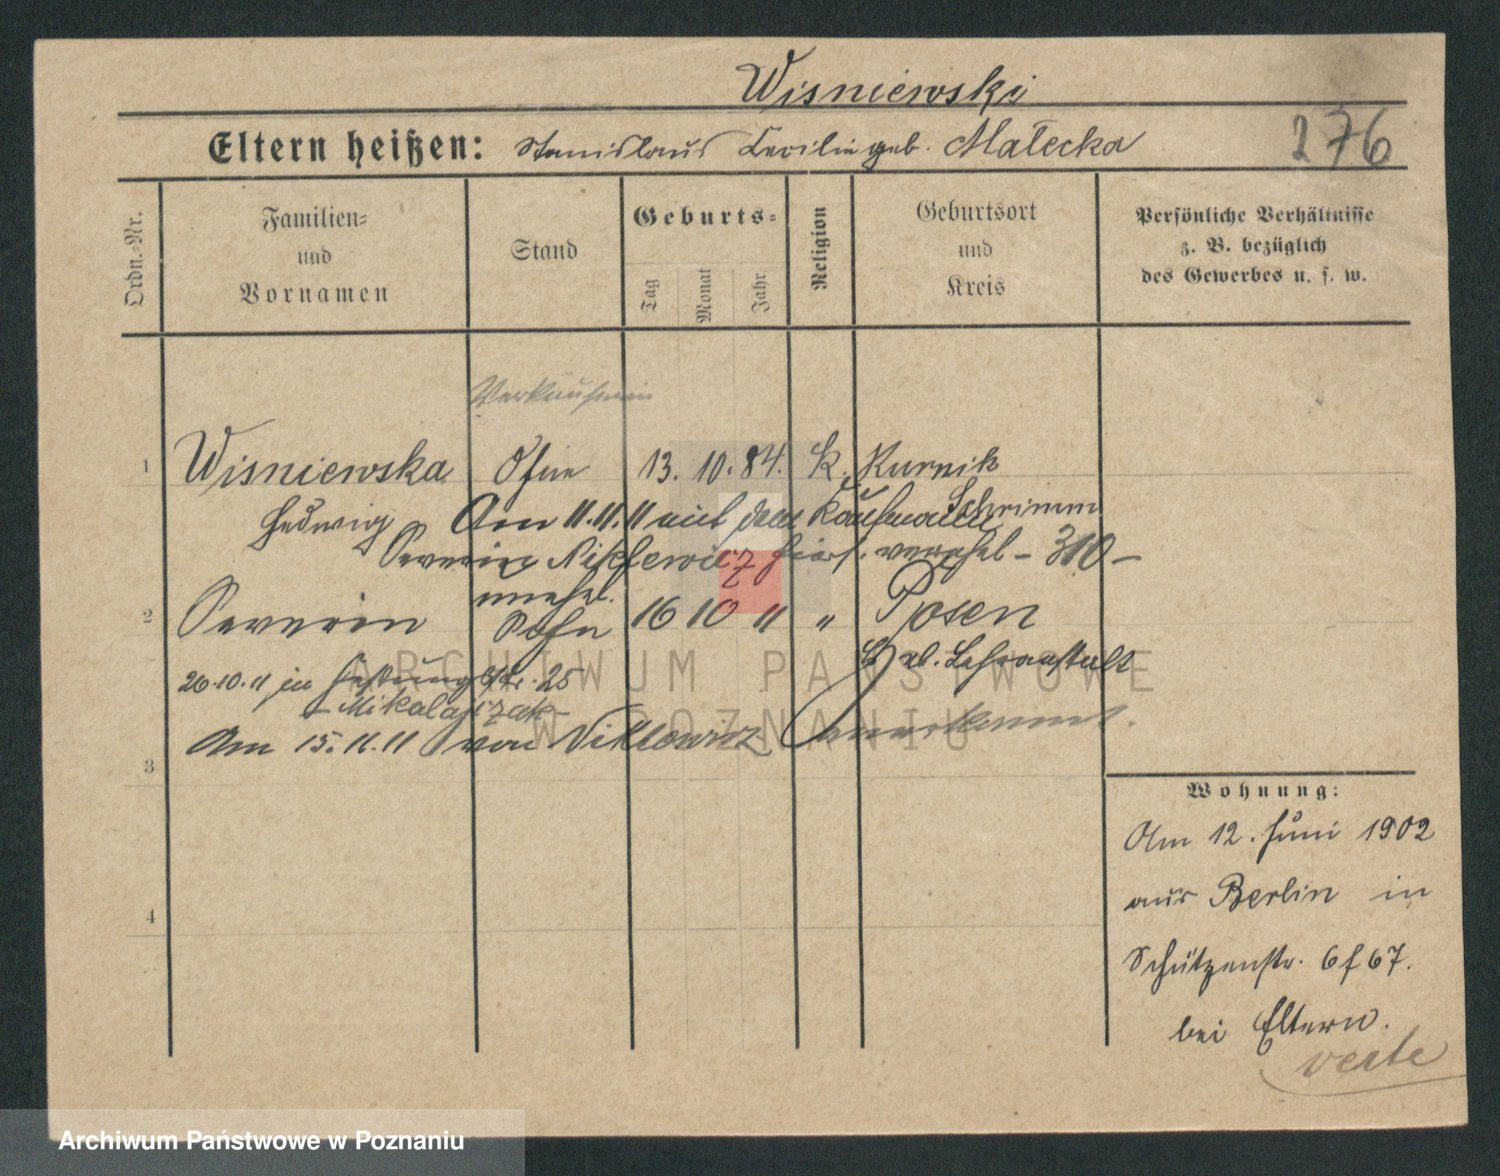 Wisniewski
Eltern heißen: Stanislaus Cecilie geb. Małecka
276
Ordn.-Nr.
Familien-
und
Vornamen
Stand
Geburts-
Tag
Monat
Jahr
Religion
Geburtsort
und
Kreis
Persönliche Verhältnisse
z. B. bezüglich
des Gewerbes u. s. w.
Verkäuferin
1 Wisniewska Ohne 13. 10. 84. k. Kurnik
Schrimm
Hedwig Am 11.11.11 mit dem Kaufmann
Severin hier verehel. - 310 -
unehel.
2 Severin Sohn 16 10 11 " Posen
Heb. Lehranstalt
26.10.11 in Str. 25
- Mikolajczak -
Am 15.11.11 von anerkannt.
3
4
Wohnung:
Am 12. Juni 1902
aus Berlin in
Schützenstr. 6 f 67.
bei Eltern.
verte
ARCHIWUM PAŃSTWOWE
W POZNANIU
Archiwum Państwowe w Poznaniu